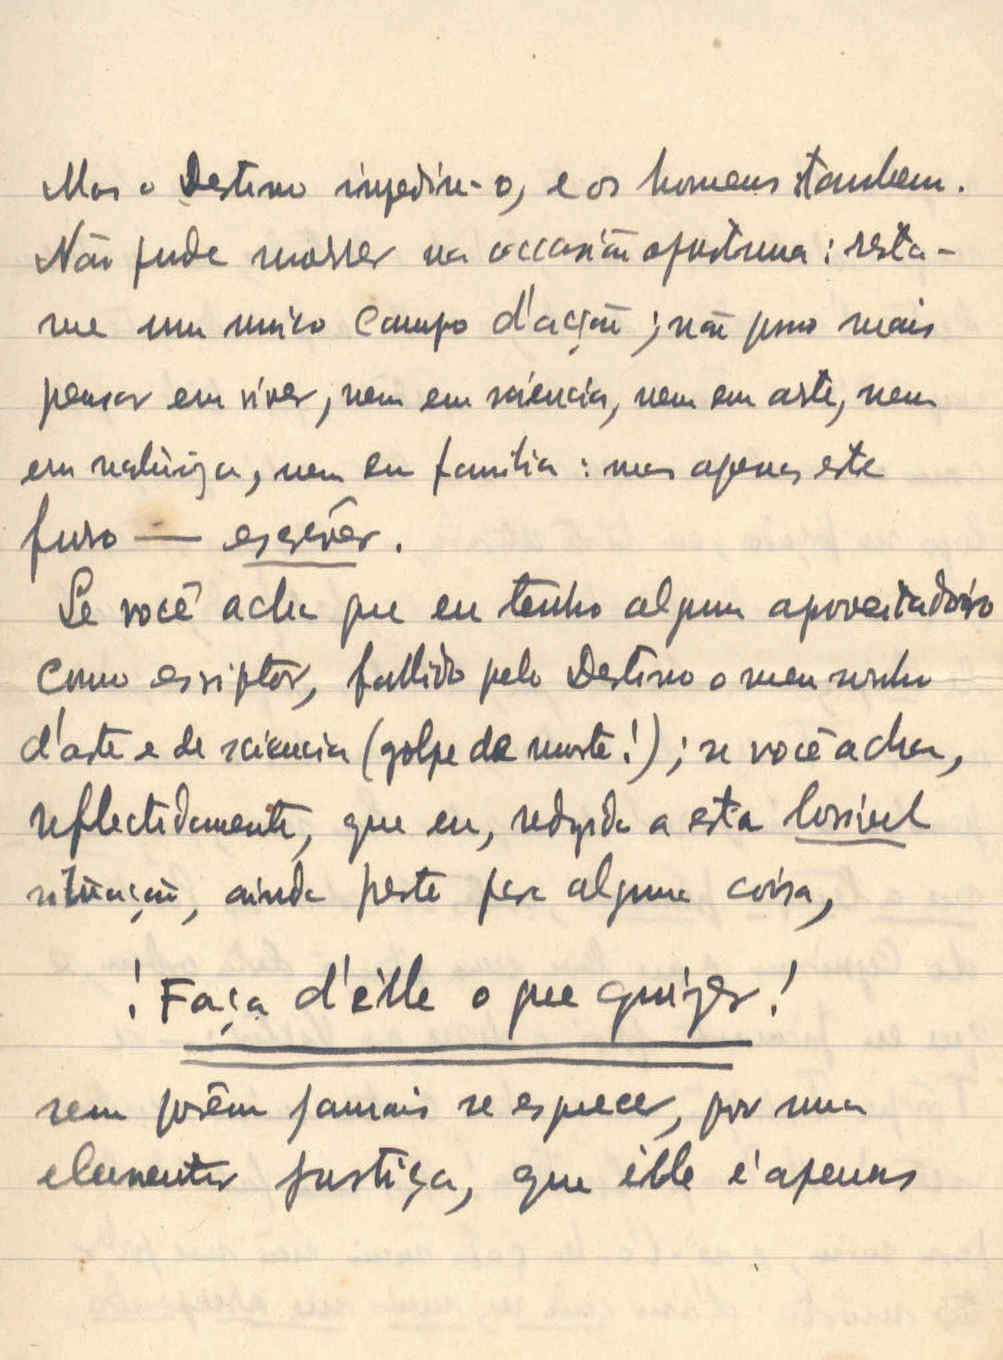 Mas o Destino impediu-o, e os homens tambem.
Não pude morrer na occasião oportuna : resta-
me um unico campo d'acção ; não posso mais
pensar em viver, nem em sciencia, nem em arte, nem
em natureza, nem em familia : mas apenas este
furo — escrevêr.
Se você acha que eu tenho algum aproveitadoiro
como escriptôr, fallido pelo Destino o meu sonho
d'arte e de sciencia (golpe de morte!) ; se você acha,
reflectidamente, que eu, redusido a esta horrivel
situação, ainda preste pera alguma coisa,
! Faça d'êlle o que quizer !
sem porêm jamais se esquecer, por uma
elementar justiça, que êlle é apenas